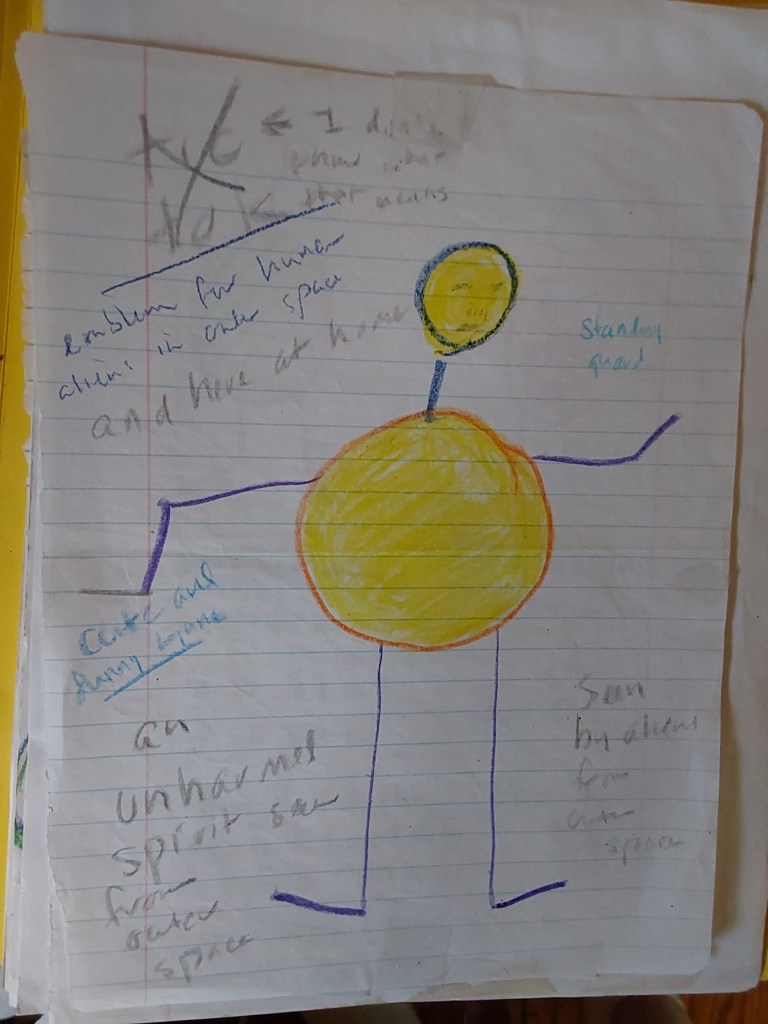 ← I didn't
know what
that means
emblem for human
aliens in outer space
and here at home
Standing
guard
cute and
funny
an
unharmed
spirit seen
from
outer
space
Seen
by aliens
from
outer
space